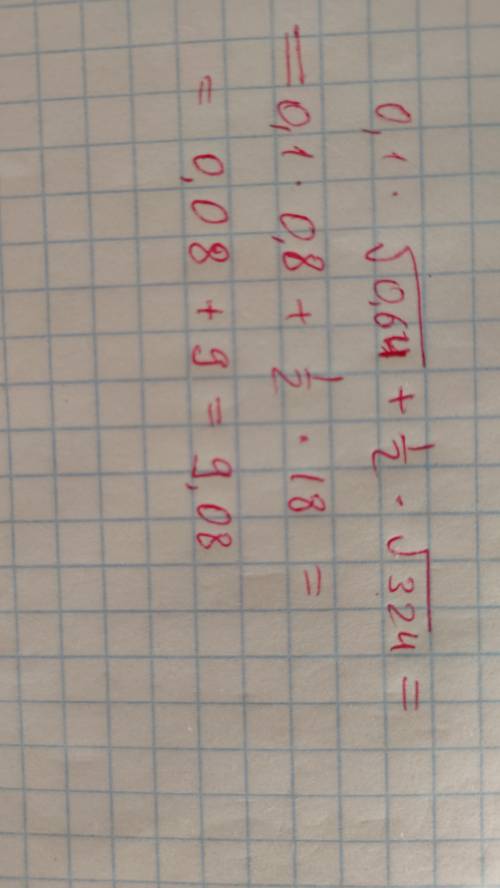 0,1 · √0,64 + 1/2 · √324 =
= 0,1 · 0,8 + 1/2 · 18 =
= 0,08 + 9 = 9,08